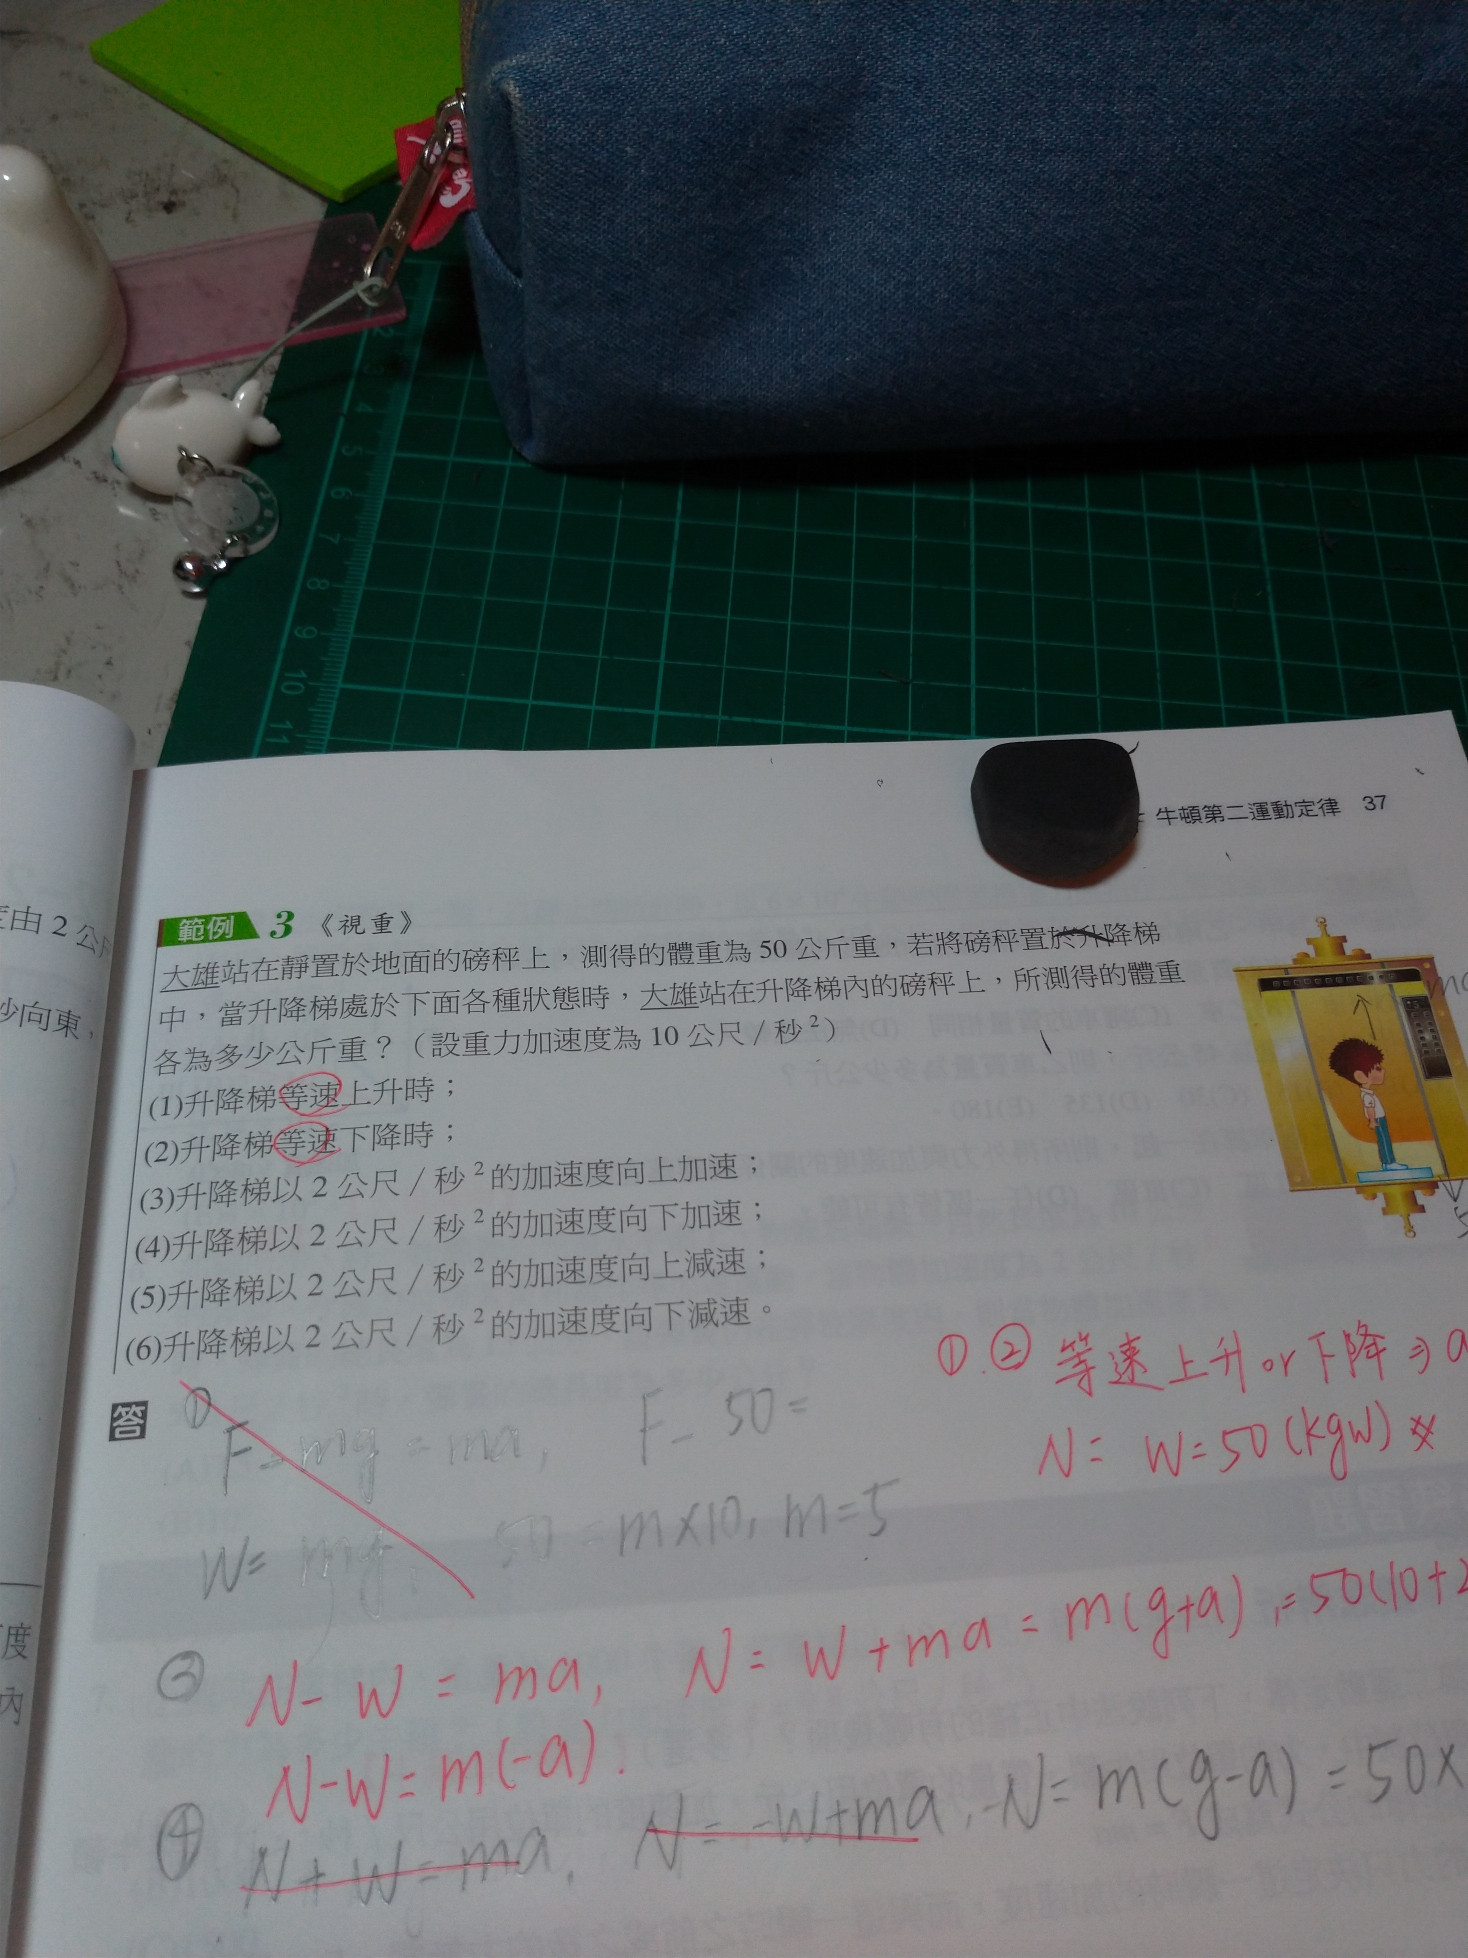 牛頓第二運動定律 37
範例 3 《視重》
大雄站在靜置於地面的磅秤上，測得的體重為 50 公斤重，若將磅秤置於升降梯
中，當升降梯處於下面各種狀態時，大雄站在升降梯內的磅秤上，所測得的體重
各為多少公斤重？（設重力加速度為 10 公尺／秒²）
(1)升降梯等速上升時；
(2)升降梯等速下降時；
(3)升降梯以 2 公尺／秒²的加速度向上加速；
(4)升降梯以 2 公尺／秒²的加速度向下加速；
(5)升降梯以 2 公尺／秒²的加速度向上減速；
(6)升降梯以 2 公尺／秒²的加速度向下減速。
答
①.② 等速上升or下降⇒a
N= W=50(kgw)
① F-mg=ma, F-50=
W=mg, 50=m×10, m=5
③ N-W=ma, N=W+ma=m(g+a),=50(10+2
N-W=m(-a).
④ N+W=ma, N=-W+ma, N=m(g-a)=50×
由 2 公
秒向東，
度
內
2
4
5
6
7
8
9
10
11